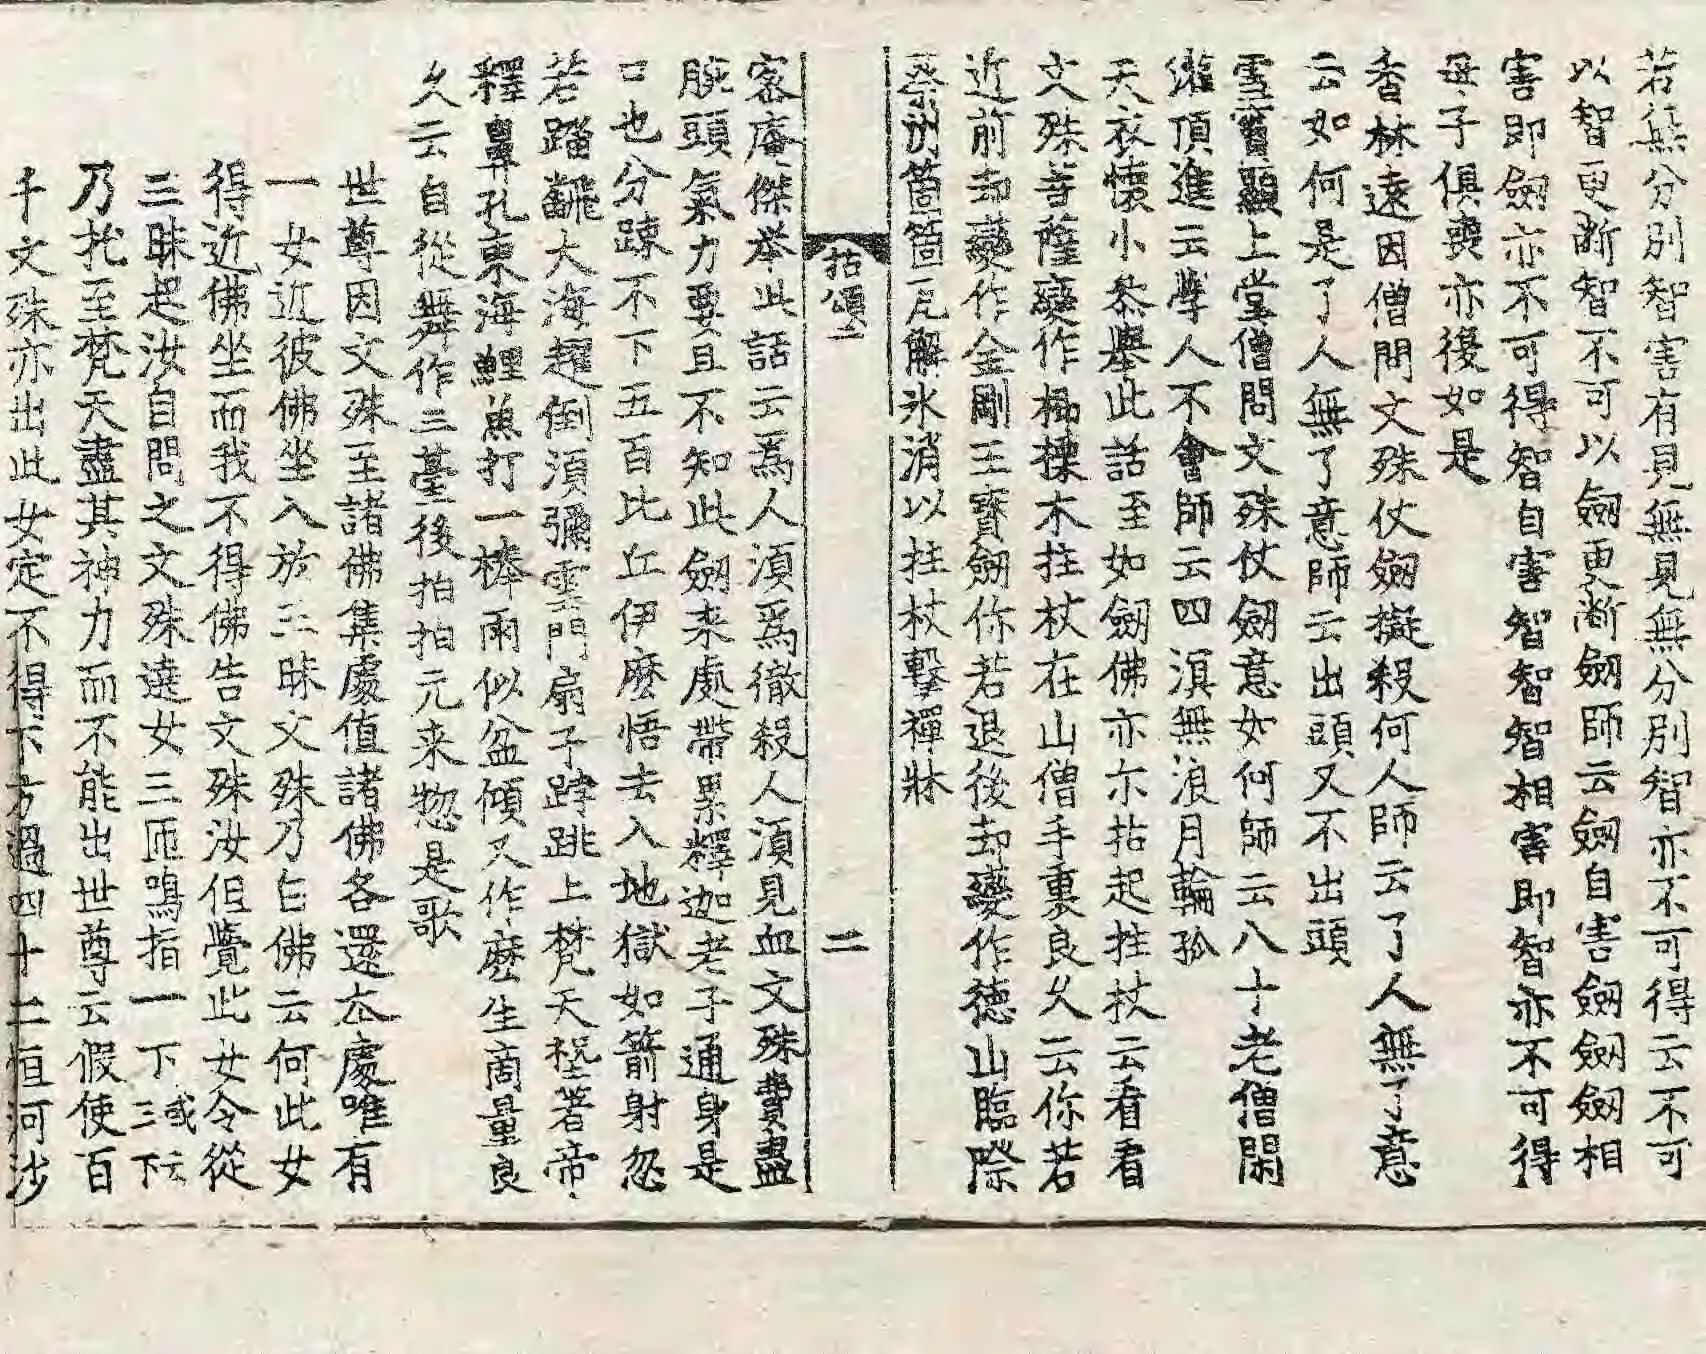 若無分別智害有見無見無分別智亦不可得云不可
以智更断智不可以劔更断劔師云劔自害劔劔劔相
害即劔亦不可得智自害智智智相害即智亦不可得
母子俱喪亦後如是
香林遠因僧問文殊仗劔擬殺何人師云了人無了意
云如何是了人無了意師云出頭又不出頭
雪竇顯上堂僧問文殊仗劔意如何師云八十老僧閑
灌頂進云學人不會師云四溟無浪月輪孤
天衣懷小叅舉此話至如劔佛亦尓拈起拄杖云看看
文殊菩薩變作楖𣗖木拄杖在山僧手裏良久云你若
近前却變作金剛王寳劔你若退後却變作德山臨際
祭別箇箇瓦解氷消以拄杖擊禪牀
拈頌 二
密庵傑举此話云爲人須爲徹殺人須見血文殊費盡
腕頭氣力要且不知此劔来處帶累釋迦老子通身是
口也分踈不下五百比丘伊麽悟去入地獄如箭射忽
若踏翻大海趯倒須彌雲門扇子𨁝跳上梵天𡎺著帝
釋鼻孔東海鯉魚打一棒雨似盆傾又作麽生商量良
久云自從舞作三䑓後拍拍元来惣是歌
世尊因文殊至諸佛集處值諸佛各還夲處唯有
一女近彼佛坐入於三昧文殊乃白佛云何此女
得近佛坐而我不得佛告文殊汝但覺此女令從
三昧起汝自問之文殊遶女三匝鳴指一下三下云
乃托至梵天盡其神力而不能出世尊云假使百
千文殊亦出此女定不得下方過四十二恒河沙